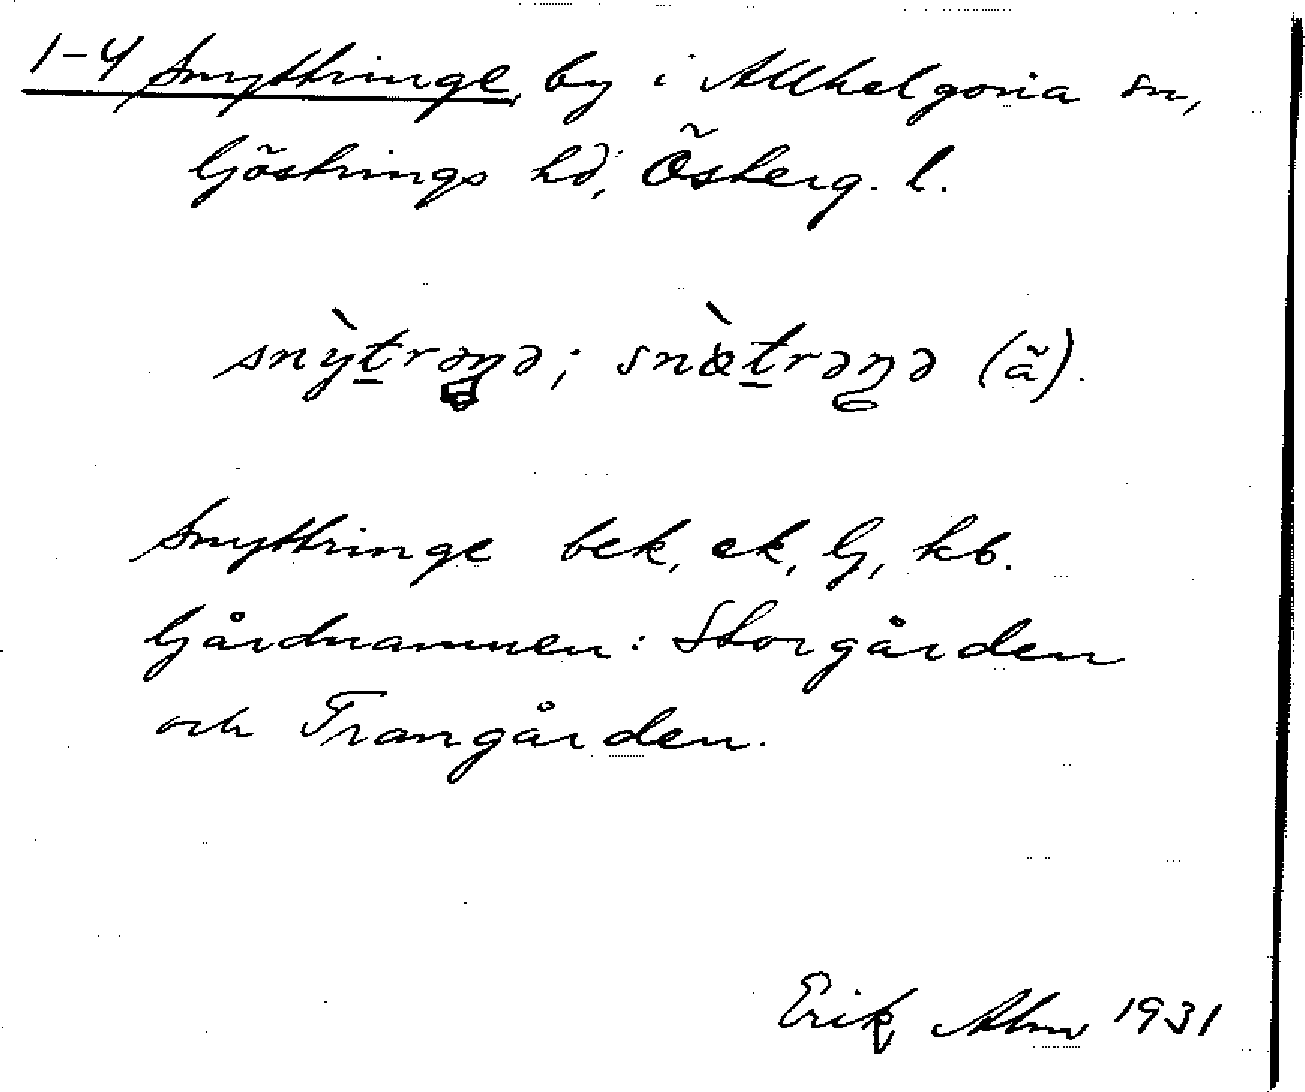 1-4 Snyttringe, by i Allhelgona sn,
Göstrings hd, Österg. l.
snỳt̲rəŋə; snæ̀t̲rəŋə (ä).
Snyttringe bek, ek, G, kb.
Gårdnamnen: Storgården
och Frangården.
Erik Abm 1931